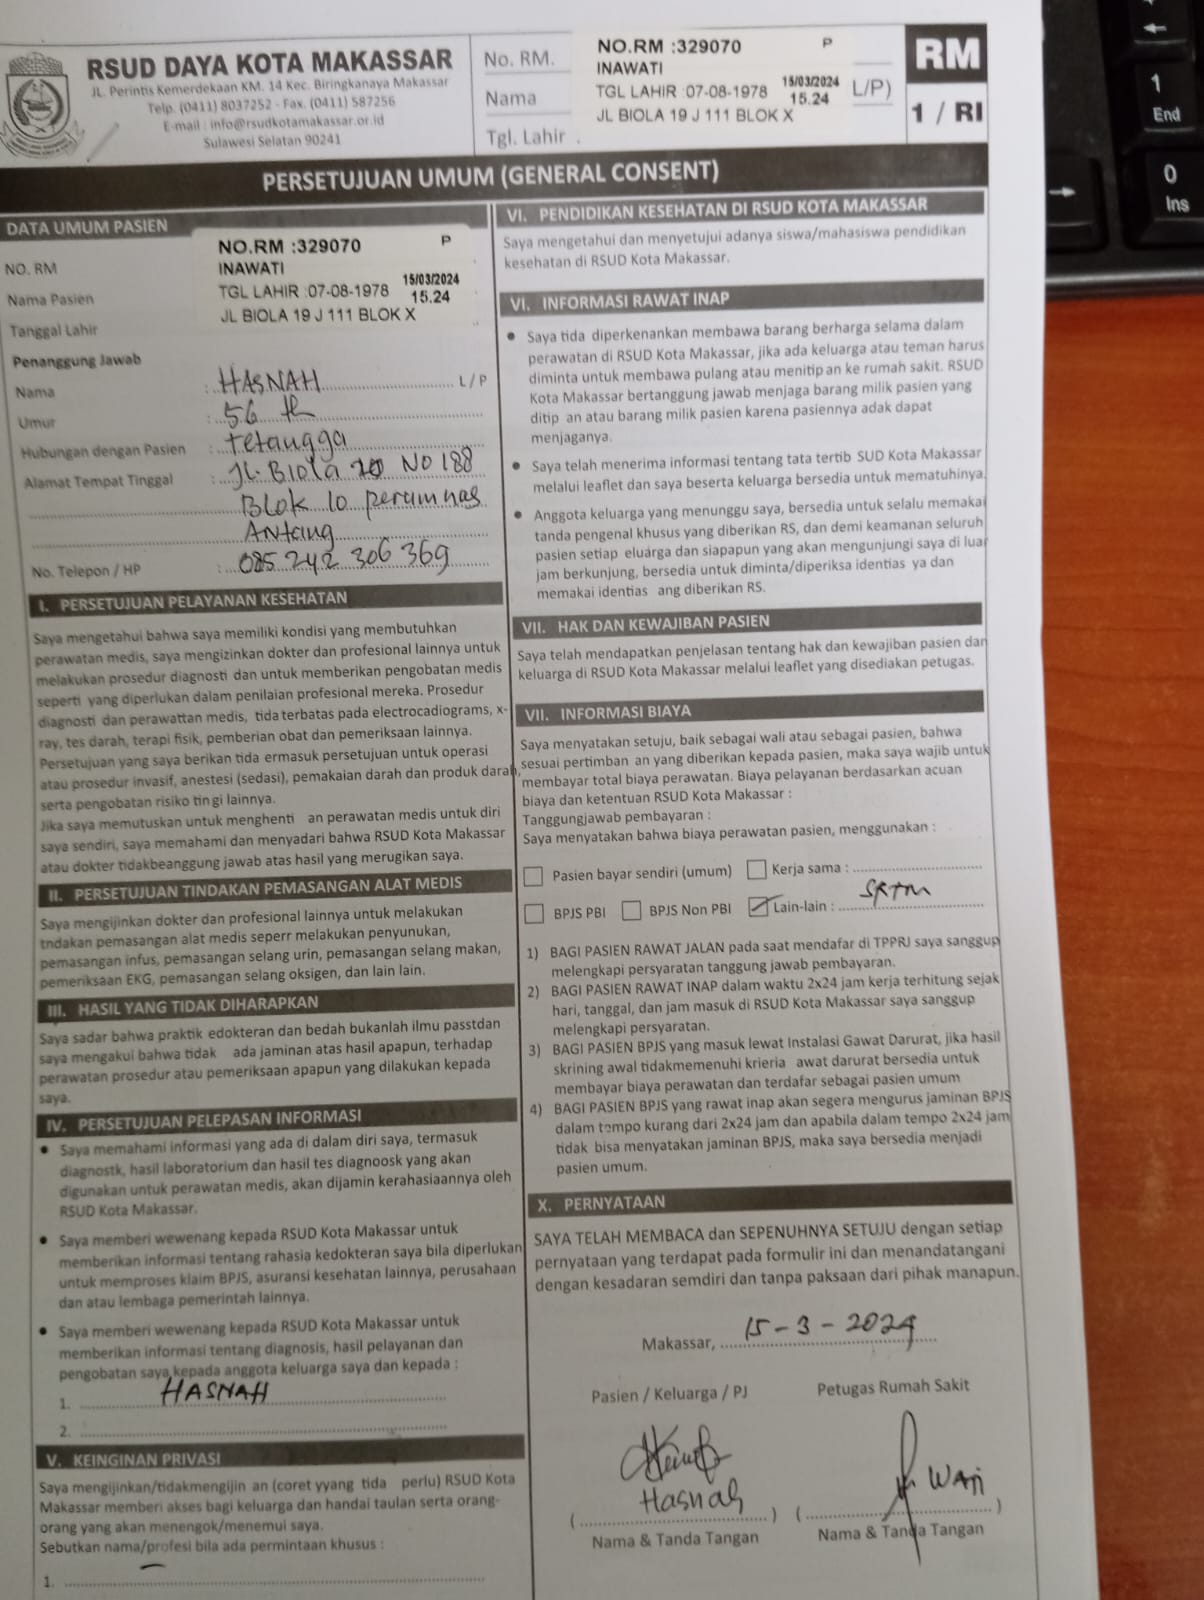 RSUD DAYA KOTA MAKASSAR
JL. Perintis Kemerdekaan KM. 14 Kec. Biringkanaya Makassar
Telp. (0411) 8037252 - Fax. (0411) 587256
E-mail : info@rsudkotamakassar.or.id
Sulawesi Selatan 90241
No. RM.
Nama
Tgl. Lahir
NO.RM :329070 P
INAWATI
TGL LAHIR :07-08-1978 15/03/2024 15.24
JL BIOLA 19 J 111 BLOK X
L/P)
RM
1 / RI
PERSETUJUAN UMUM (GENERAL CONSENT)
DATA UMUM PASIEN
NO. RM
Nama Pasien
Tanggal Lahir
NO.RM :329070 P
INAWATI
TGL LAHIR :07-08-1978 15/03/2024 15.24
JL BIOLA 19 J 111 BLOK X
Penanggung Jawab
Nama : HASNAH L / P
Umur : 56 th
Hubungan dengan Pasien : Tetangga
Alamat Tempat Tinggal : JL. Biola NO 188
Blok 10 perumnas
Antang
No. Telepon / HP : 085 242 306 369
I. PERSETUJUAN PELAYANAN KESEHATAN
Saya mengetahui bahwa saya memiliki kondisi yang membutuhkan
perawatan medis, saya mengizinkan dokter dan profesional lainnya untuk
melakukan prosedur diagnosti dan untuk memberikan pengobatan medis
seperti yang diperlukan dalam penilaian profesional mereka. Prosedur
diagnosti dan perawattan medis, tida terbatas pada electrocadiograms, x-
ray, tes darah, terapi fisik, pemberian obat dan pemeriksaan lainnya.
Persetujuan yang saya berikan tida ermasuk persetujuan untuk operasi
atau prosedur invasif, anestesi (sedasi), pemakaian darah dan produk darah,
serta pengobatan risiko tin gi lainnya.
Jika saya memutuskan untuk menghenti an perawatan medis untuk diri
saya sendiri, saya memahami dan menyadari bahwa RSUD Kota Makassar
atau dokter tidakbeanggung jawab atas hasil yang merugikan saya.
II. PERSETUJUAN TINDAKAN PEMASANGAN ALAT MEDIS
Saya mengijinkan dokter dan profesional lainnya untuk melakukan
tndakan pemasangan alat medis seperr melakukan penyunukan,
pemasangan infus, pemasangan selang urin, pemasangan selang makan,
pemeriksaan EKG, pemasangan selang oksigen, dan lain lain.
III. HASIL YANG TIDAK DIHARAPKAN
Saya sadar bahwa praktik edokteran dan bedah bukanlah ilmu passtdan
saya mengakui bahwa tidak ada jaminan atas hasil apapun, terhadap
perawatan prosedur atau pemeriksaan apapun yang dilakukan kepada
saya.
IV. PERSETUJUAN PELEPASAN INFORMASI
• Saya memahami informasi yang ada di dalam diri saya, termasuk
diagnostk, hasil laboratorium dan hasil tes diagnoosk yang akan
digunakan untuk perawatan medis, akan dijamin kerahasiaannya oleh
RSUD Kota Makassar.
• Saya memberi wewenang kepada RSUD Kota Makassar untuk
memberikan informasi tentang rahasia kedokteran saya bila diperlukan
untuk memproses klaim BPJS, asuransi kesehatan lainnya, perusahaan
dan atau lembaga pemerintah lainnya.
• Saya memberi wewenang kepada RSUD Kota Makassar untuk
memberikan informasi tentang diagnosis, hasil pelayanan dan
pengobatan saya kepada anggota keluarga saya dan kepada :
1. HASNAH
2.
V. KEINGINAN PRIVASI
Saya mengijinkan/tidakmengijin an (coret yyang tida perlu) RSUD Kota
Makassar memberi akses bagi keluarga dan handai taulan serta orang-
orang yang akan menengok/menemui saya.
Sebutkan nama/profesi bila ada permintaan khusus :
1.
VI. PENDIDIKAN KESEHATAN DI RSUD KOTA MAKASSAR
Saya mengetahui dan menyetujui adanya siswa/mahasiswa pendidikan
kesehatan di RSUD Kota Makassar.
VI. INFORMASI RAWAT INAP
• Saya tida diperkenankan membawa barang berharga selama dalam
perawatan di RSUD Kota Makassar, jika ada keluarga atau teman harus
diminta untuk membawa pulang atau menitip an ke rumah sakit. RSUD
Kota Makassar bertanggung jawab menjaga barang milik pasien yang
ditip an atau barang milik pasien karena pasiennya adak dapat
menjaganya.
• Saya telah menerima informasi tentang tata tertib SUD Kota Makassar
melalui leaflet dan saya beserta keluarga bersedia untuk mematuhinya.
• Anggota keluarga yang menunggu saya, bersedia untuk selalu memakai
tanda pengenal khusus yang diberikan RS, dan demi keamanan seluruh
pasien setiap eluarga dan siapapun yang akan mengunjungi saya di luar
jam berkunjung, bersedia untuk diminta/diperiksa identias ya dan
memakai identias ang diberikan RS.
VII. HAK DAN KEWAJIBAN PASIEN
Saya telah mendapatkan penjelasan tentang hak dan kewajiban pasien dan
keluarga di RSUD Kota Makassar melalui leaflet yang disediakan petugas.
VII. INFORMASI BIAYA
Saya menyatakan setuju, baik sebagai wali atau sebagai pasien, bahwa
sesuai pertimban an yang diberikan kepada pasien, maka saya wajib untuk
membayar total biaya perawatan. Biaya pelayanan berdasarkan acuan
biaya dan ketentuan RSUD Kota Makassar :
Tanggungjawab pembayaran :
Saya menyatakan bahwa biaya perawatan pasien, menggunakan :
Pasien bayar sendiri (umum) Kerja sama :
BPJS PBI BPJS Non PBI Lain-lain : SKTM
1) BAGI PASIEN RAWAT JALAN pada saat mendafar di TPPRJ saya sanggup
melengkapi persyaratan tanggung jawab pembayaran.
2) BAGI PASIEN RAWAT INAP dalam waktu 2x24 jam kerja terhitung sejak
hari, tanggal, dan jam masuk di RSUD Kota Makassar saya sanggup
melengkapi persyaratan.
3) BAGI PASIEN BPJS yang masuk lewat Instalasi Gawat Darurat, jika hasil
skrining awal tidakmemenuhi krieria awat darurat bersedia untuk
membayar biaya perawatan dan terdafar sebagai pasien umum
4) BAGI PASIEN BPJS yang rawat inap akan segera mengurus jaminan BPJS
dalam tempo kurang dari 2x24 jam dan apabila dalam tempo 2x24 jam
tidak bisa menyatakan jaminan BPJS, maka saya bersedia menjadi
pasien umum.
X. PERNYATAAN
SAYA TELAH MEMBACA dan SEPENUHNYA SETUJU dengan setiap
pernyataan yang terdapat pada formulir ini dan menandatangani
dengan kesadaran semdiri dan tanpa paksaan dari pihak manapun.
Makassar, 15 - 3 - 2024
Pasien / Keluarga / PJ Petugas Rumah Sakit
Hasnah WAN
Nama & Tanda Tangan Nama & Tanda Tangan
1
End
0
Ins